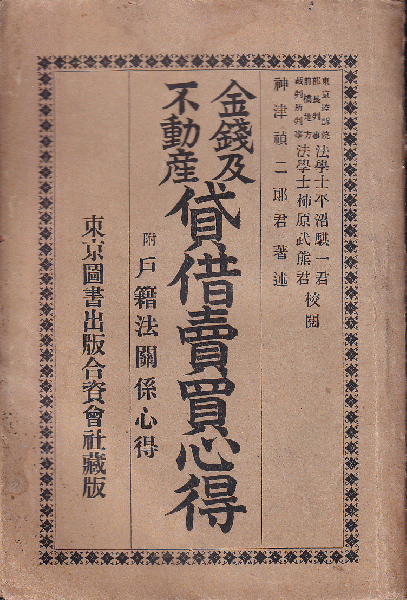 東京控訴院部長判事 法學士平沼騏一君
前橋地方裁判所判事 法學士柿原武熊君 校閲
神津禎二郎君著述
金錢及不動産貸借賣買心得
附戶籍法關係心得
東京圖書出版合資會社藏版